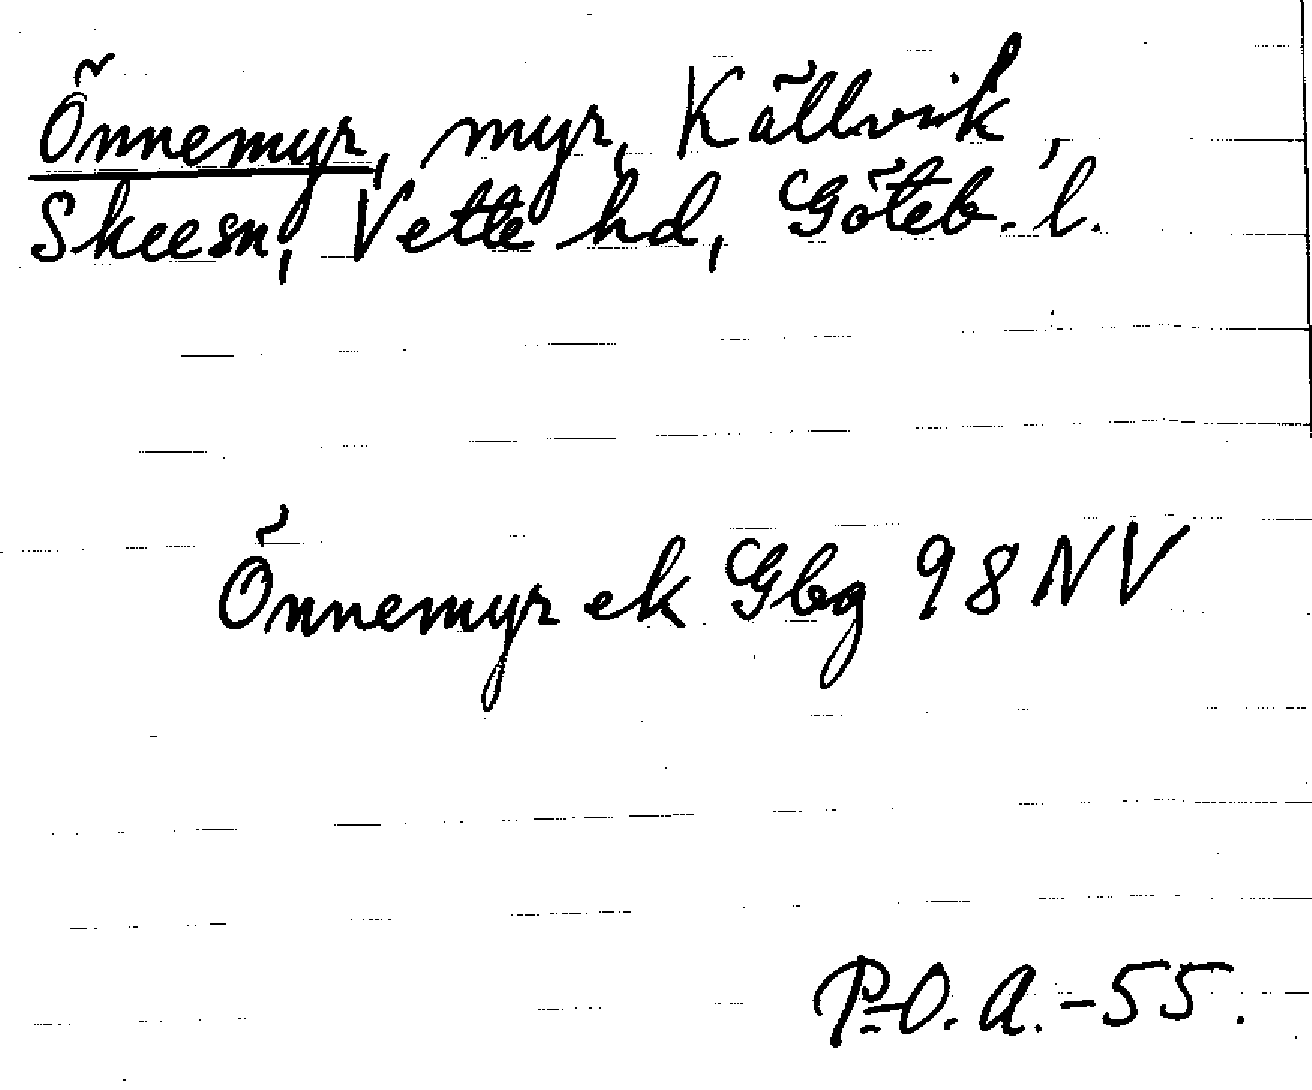 Önnemyr, myr, Källvik,
Skeesn, Vette hd, Göteb. l.
Önnemyr ek Gbg 98 NV
P-O. A. -55.